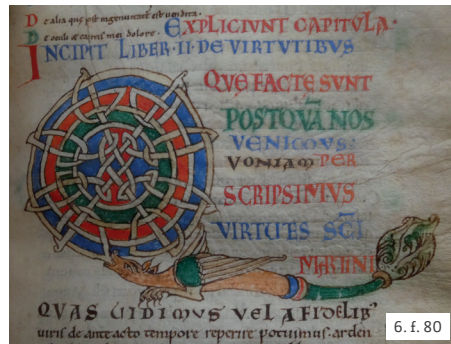 De alia que post ingenuitatē est uendita.
EXPLICIVNT CAPITVLA·
De oculi et capitis mei dolore.
INCIPIT LIBER·II·DE VIRTVTIBVS
QVE FACTE SVNT
POSTQVĀ NOS
VENIMVS:
VONIAM PER
SCRIPSIMVS
VIRTVTES SC̄I
MARTINI
QVAS VIDIMVS VEL A FIDELIB'
uiris de anteacto tempore reperire potuimus. arden
6. f. 80